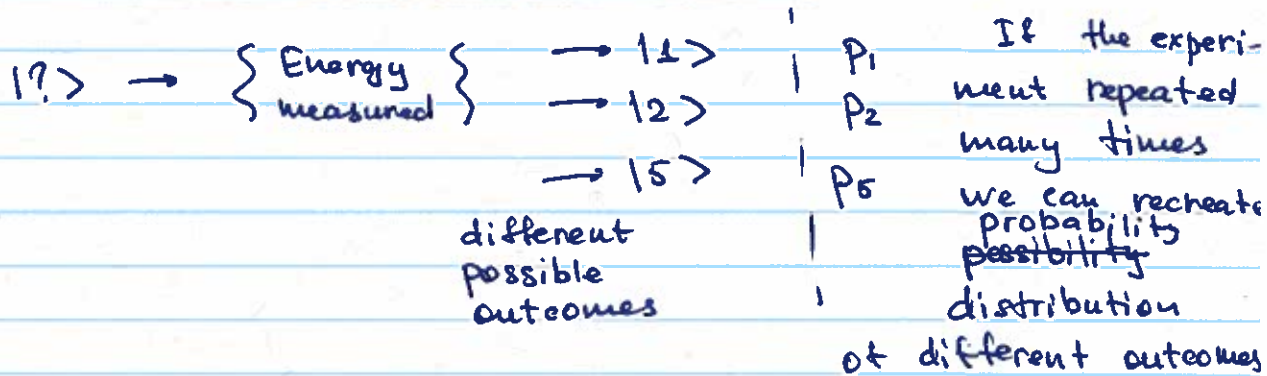 |?> → { Energy measured } → |1> | P1
→ |2> | P2
→ |5> | P5
different
possible
outcomes
If the experi-
ment repeated
many times
we can recreate
probability
possibility
distribution
of different outcomes